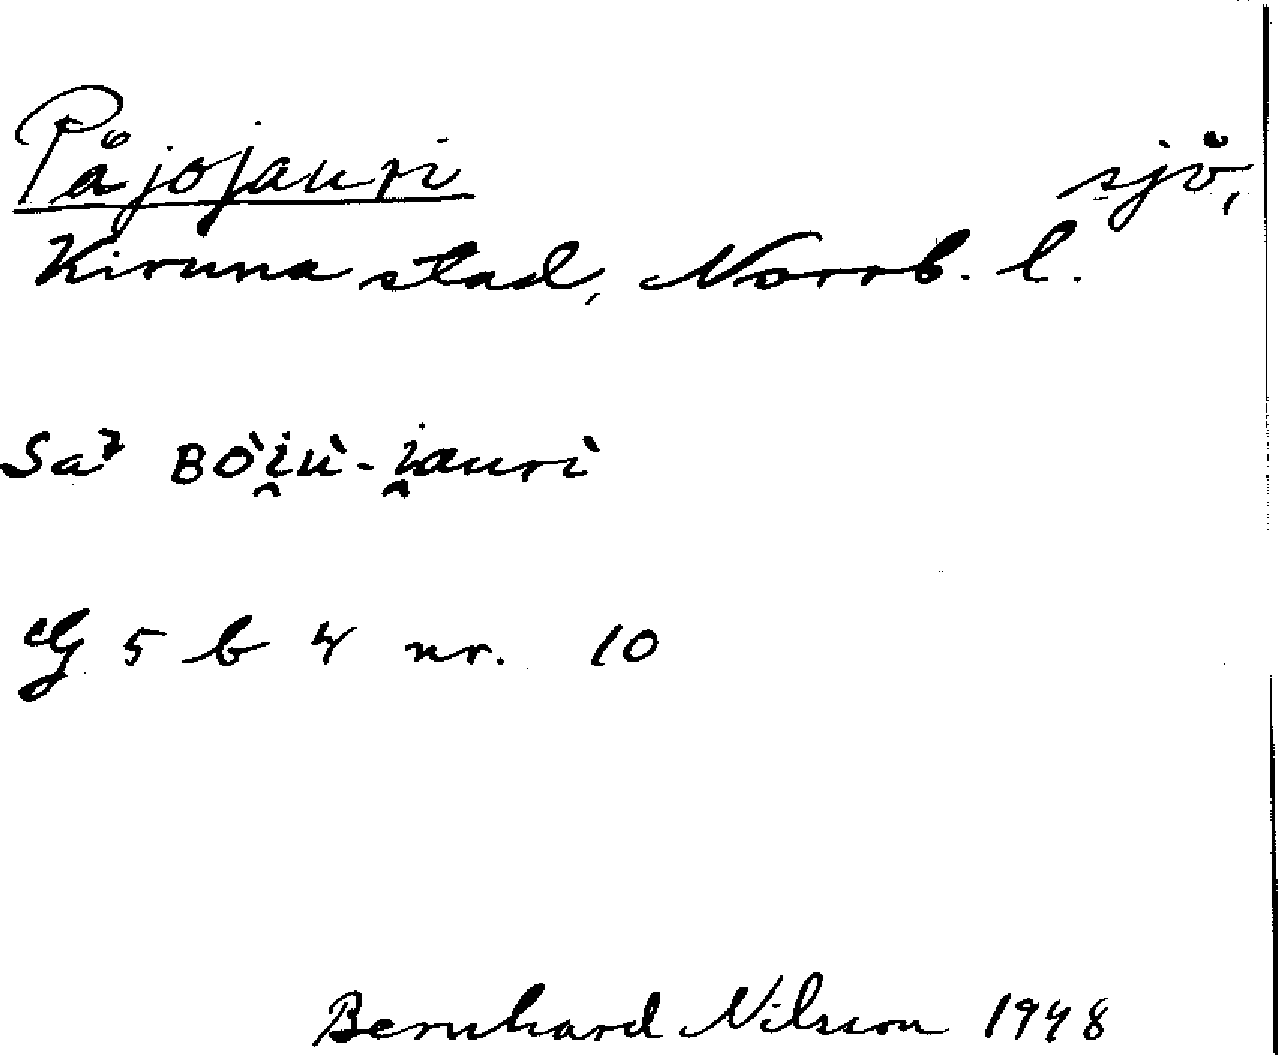 Påjojauri sjö,
Kiruna stad, Norrb. l.
Sa² ʙòi̯ù-i̯aurì
5 b 4 nr. 10
Bernhard Nilsson 1948